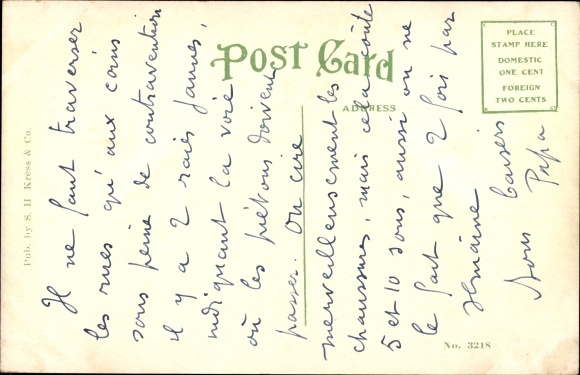 Post Card
ADDRESS
PLACE
STAMP HERE
DOMESTIC
ONE CENT
FOREIGN
TWO CENTS
Pub. by S. H. Kress & Co.
No. 3218
Il ne faut traverser
les rues qu'aux coins
sous peine de contravention
il y a 2 raies jaunes,
indiquant la voie
où les piétons doivent
passer. On cire
merveilleusement les
chaussures, mais cela coûte
5 et 10 sous, aussi on ne
le fait que 2 fois par
semaine
Bons baisers
Papa